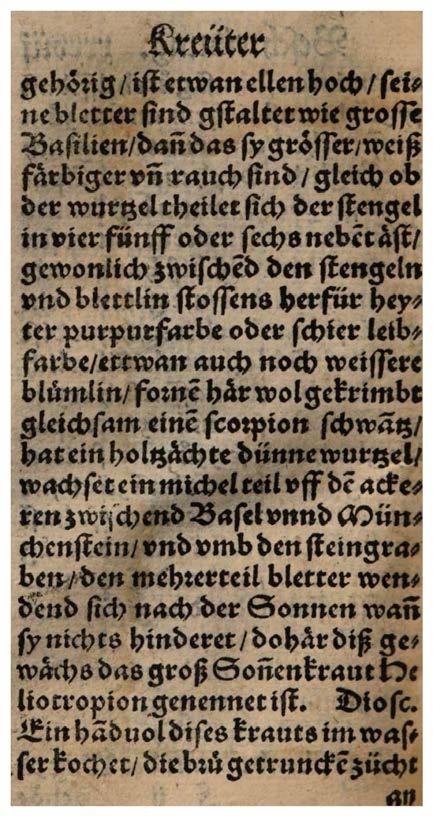 Kreüter
gehörig/ ist etwan ellen hoch/ sei⸗
ne bletter sind gstaltet wie grosse
Basilien/ dañ das sy grösser/ weiß
färbiger vñ rauch sind/ gleich ob
der wurtzel theilet sich der stengel
in vier fünff oder sechs nebẽt äst/
gewonlich zwischẽd den stengeln
vnd blettlin stossens herfür hey⸗
ter purpurfarbe oder schier leib⸗
farbe/ ettwan auch noch weissere
blůmlin/ fornẽ här wol gekrimbt
gleichsam einẽ scorpion schwãtz/
hat ein holtzächte dünne wurtzel/
wachset ein michel teil vff dẽ acke⸗
ren zwischend Basel vnnd Mün⸗
chenstein/ vnd vmb den steingra⸗
ben/ den mehrerteil bletter wen⸗
dend sich nach der Sonnen wañ
sy nichts hinderet/ dohär diß ge⸗
wächs das groß Soñenkraut He
liotropion genennet ist. Diosc.
Ein hãdvol dises krauts im was⸗
ser kochet/ die brů getrunckẽ zücht
an